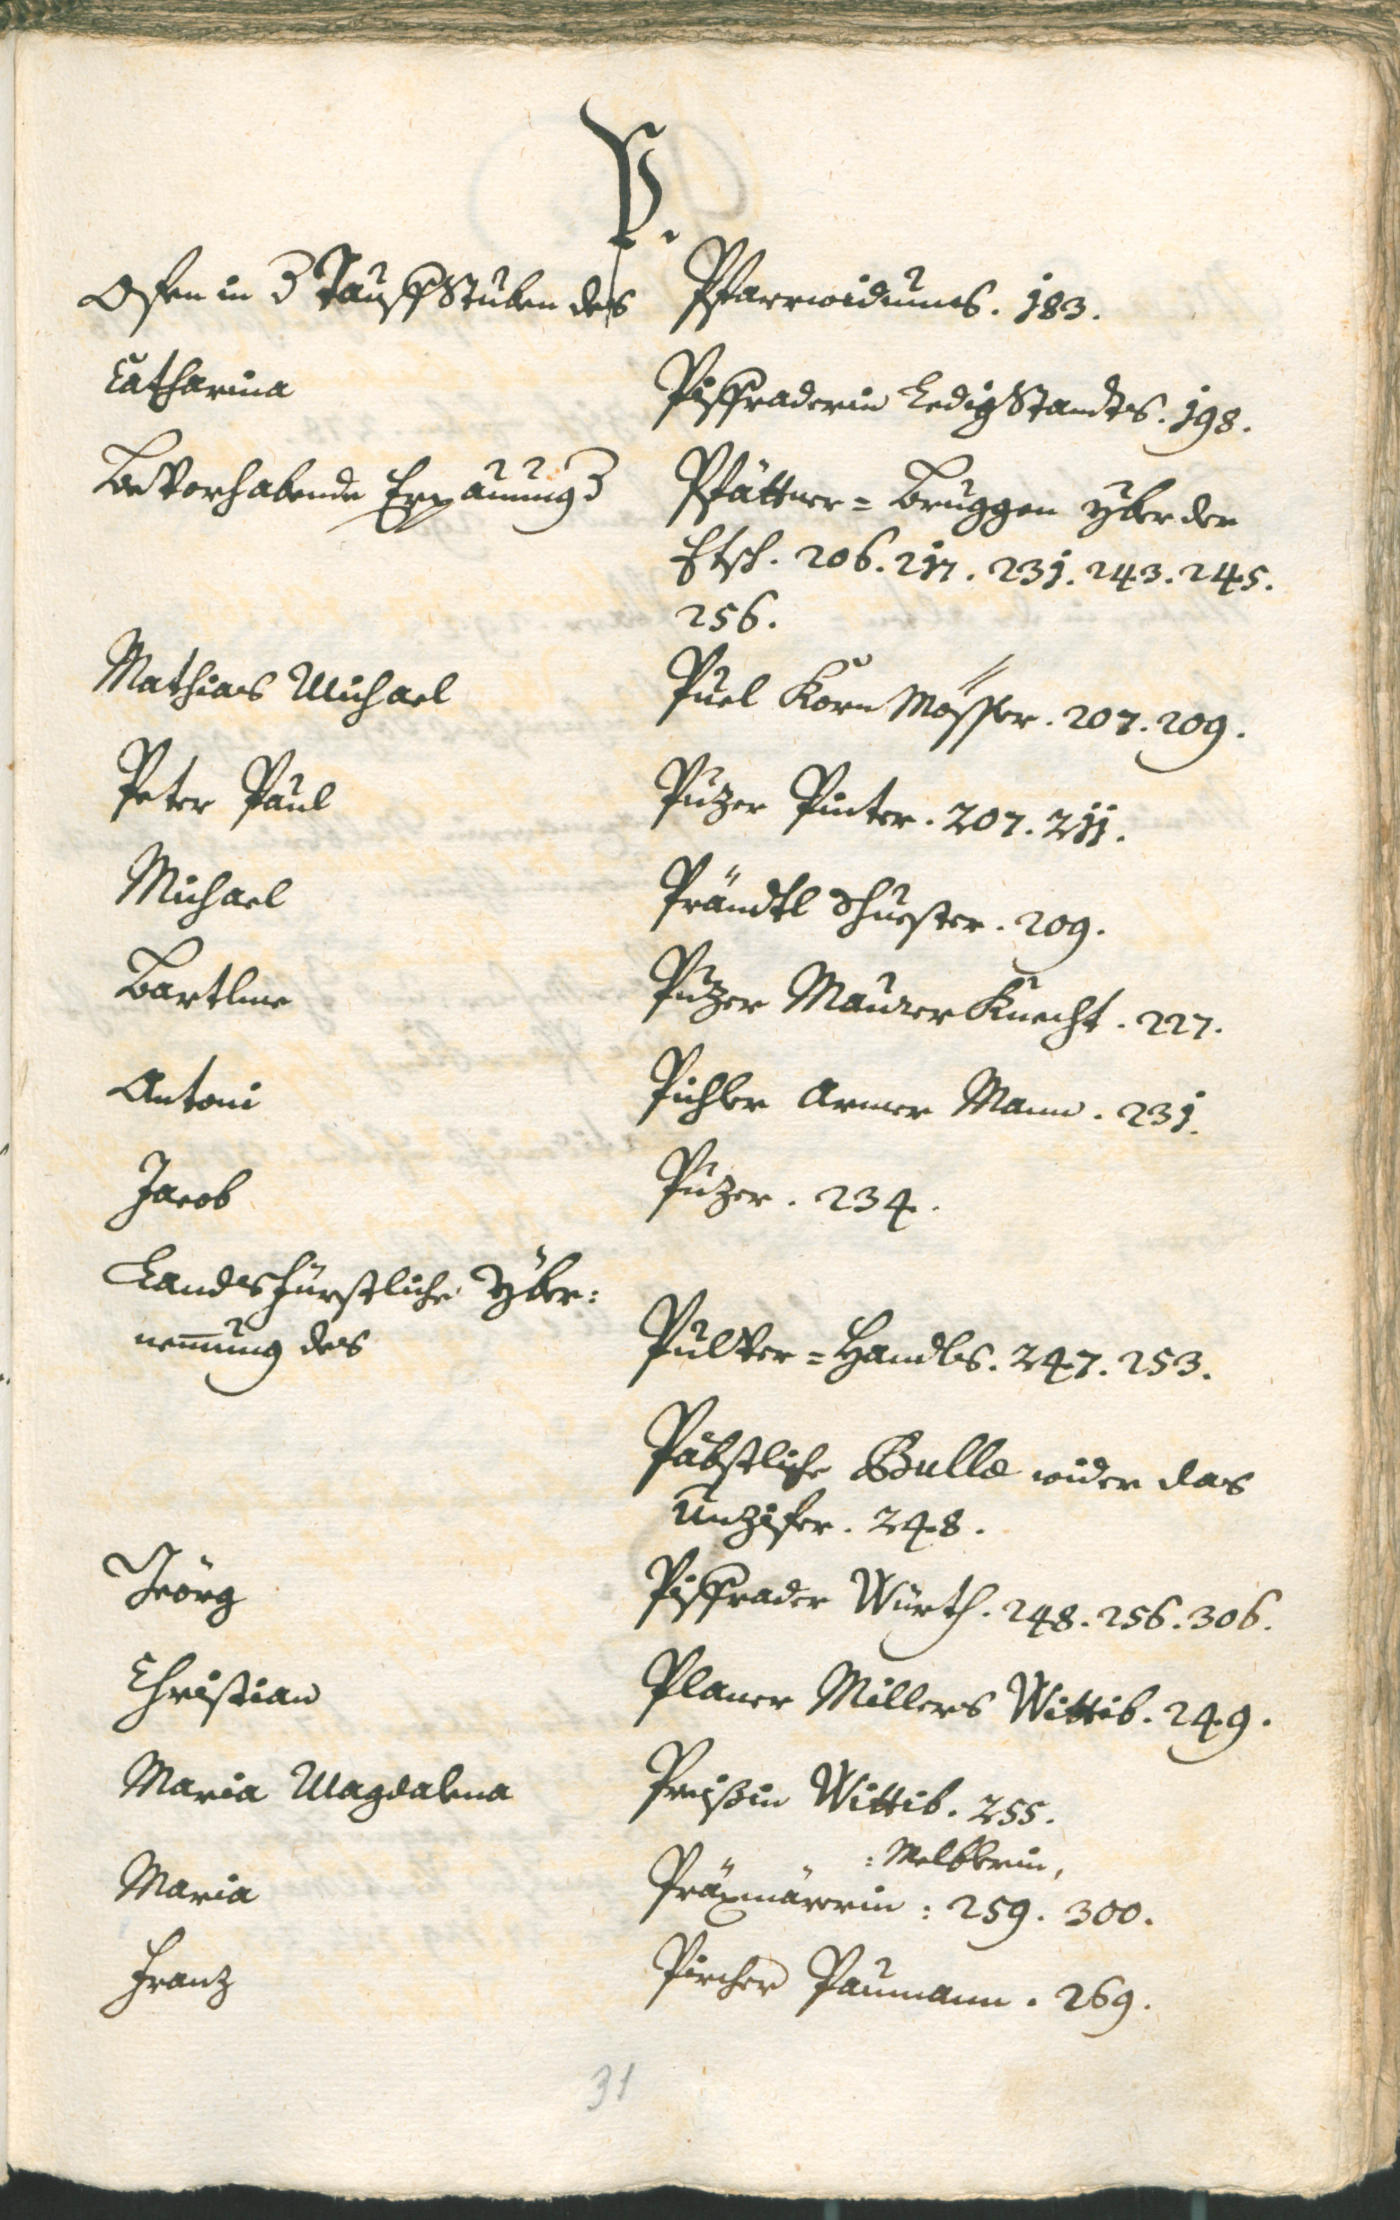 P.
Ofen in d Tauff Stuben des Pfarrwidumbs. 183.
Catharina Piffraderin Ledig Standts. 198.
Bevorhabende Erpauung d Pfättner = Bruggen yber der
Etsch. 206. 217. 231. 243. 245.
256.
Mathias Michael Puel Korn Mösser. 207. 209.
Peter Paul Puzer Pinter. 207. 211.
Michael Prändtl Schuester. 209.
Bartlme Puzer Maurer Knecht. 227.
Antoni Pichler Armer Mann. 231.
Jacob Puzer. 234.
Landsfürstliche Yber:
nemung des Pulver = Handls. 247. 253.
Päbstliche Bulla wider das
Unzifer. 248.
Jeörg Piffrader Würth. 248. 256. 306.
Christian Planer Millers Wittib. 249.
Maria Magdalena Preißin Wittib. 255.
: Melblerin,
Maria Präxmärerin : 259. 300.
Franz Pircher Paumann. 269.
31